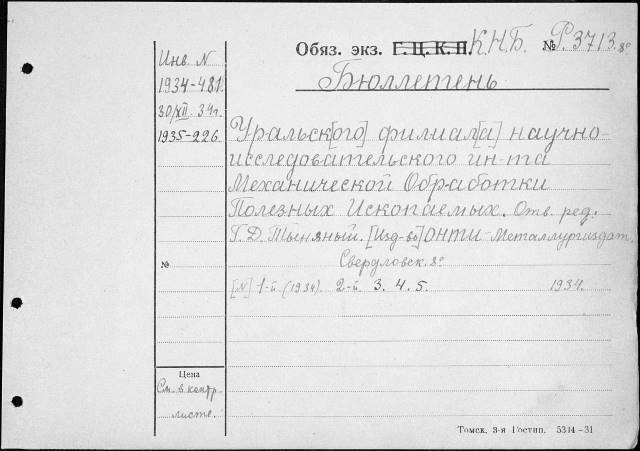 Обяз. экз. Г. Ц. К. П. К.Н.Б. № Р.3713. 8°
Инв. N
1934-481.
30/XII. 34г.
1935-226
Бюллетень
Уральск[ого] филиал[а] научно-
исследовательского ин-та
Механической Обработки
Полезных Ископаемых. Отв. ред.
Г. Д. Тыняный. [Изд-во] ОНТИ-Металлургиздат,
Свердловск. 8°
№
[N] 1-й. (1934). 2-й. 3. 4. 5. 1934.
Цена
См. в контр.
листе.
Томск. 3-я Гостип. 5314-31